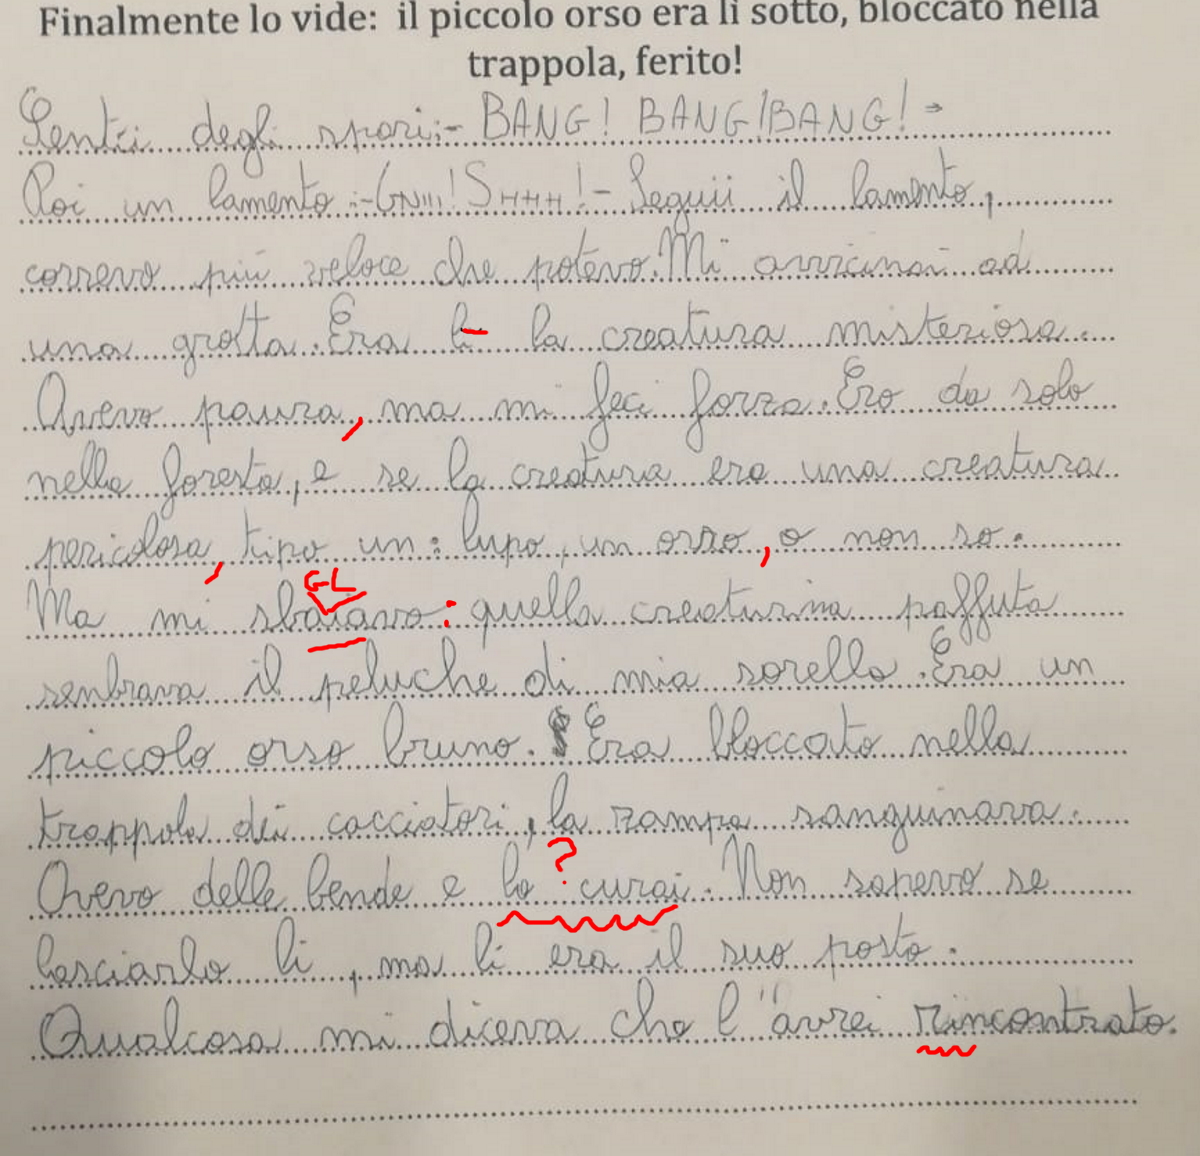 Finalmente lo vide: il piccolo orso era lì sotto, bloccato nella
trappola, ferito!
Sentii degli spari:- BANG! BANG!BANG! -
Poi un lamento :-GNIII! SHHH!- Seguii il lamento,
correvo più veloce che potevo. Mi avvicinai ad
una grotta. Era li la creatura misteriosa.
Avevo paura, ma mi feci forza. Ero da solo
nella foresta, e se la creatura era una creatura
pericolosa, tipo un: lupo, un orso, o non so.
GL
Ma mi sbaiavo: quella creaturina paffuta
senbrava il peluche di mia sorella. Era un
piccolo orso bruno. Era bloccato nella
trappola dei cacciatori, la zampa sanguinava.
?
Avevo delle bende e lo curai. Non sapevo se
lasciarlo lì, ma lì era il suo posto.
Qualcosa mi diceva che l'avrei rincontrato.